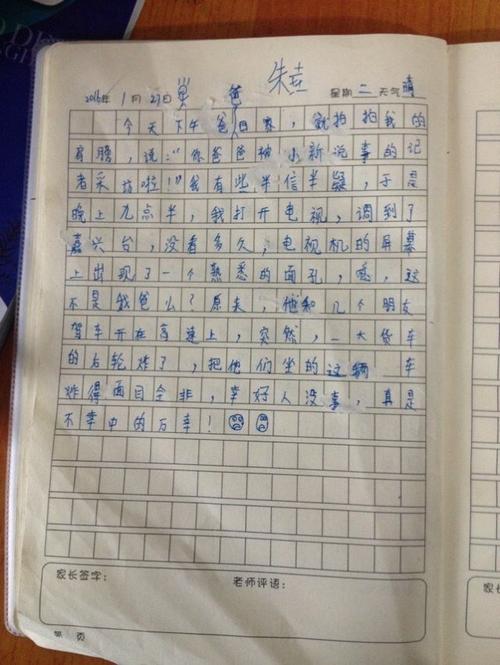 朱垚
2015年 1月27日 星期 二 天气 晴
爸
今天下午爸回家，就拍拍我的
肩膀，说："你爸爸被小新说事的记
者采访啦！"我有些半信半疑，于是
晚上九点半，我打开电视，调到了
嘉兴台，没看多久，电视机的屏幕
上出现了一个熟悉的面孔，这
不是我爸么？原来，他和几个朋友
驾车开在高速上，突然，一大货车
的右轮炸了，把他们坐的这辆车
炸得面目全非，幸好人没事，真是
不幸中的万幸！
家长签字： 老师评语：
第 页